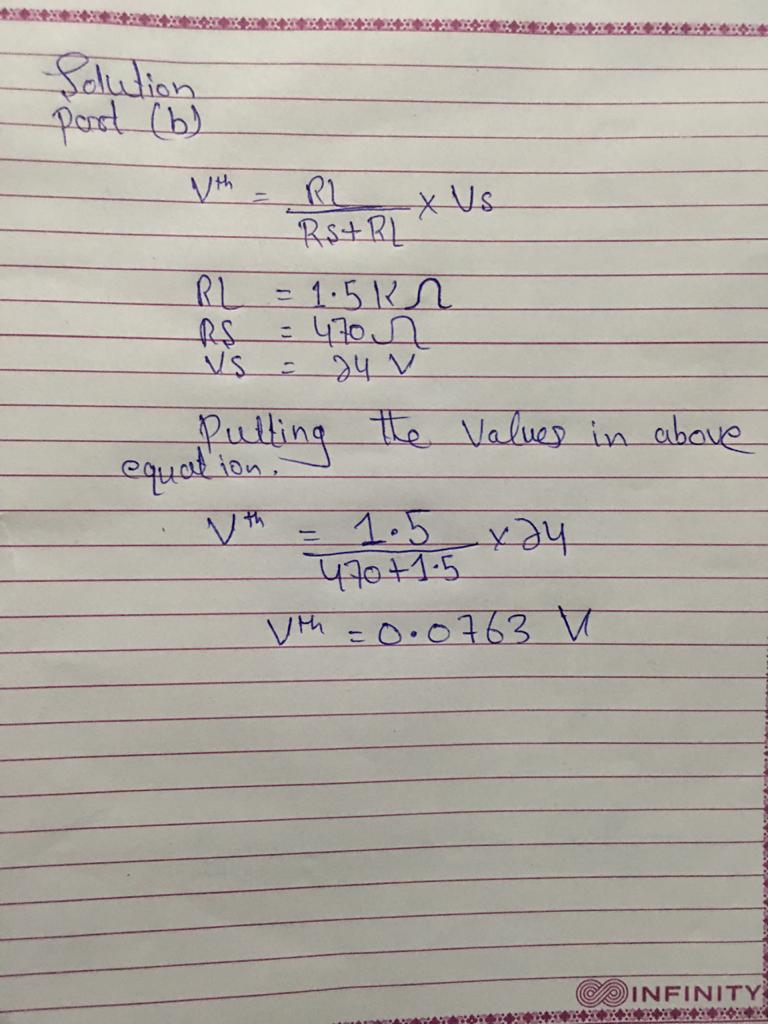 Solution
Part (b)
Vth = RL / RS+RL x Vs
RL = 1.5 KΩ
RS = 470 Ω
VS = 24 V
Putting the Values in above
equation.
Vth = 1.5 / 470+1.5 x 24
Vth = 0.0763 V
INFINITY